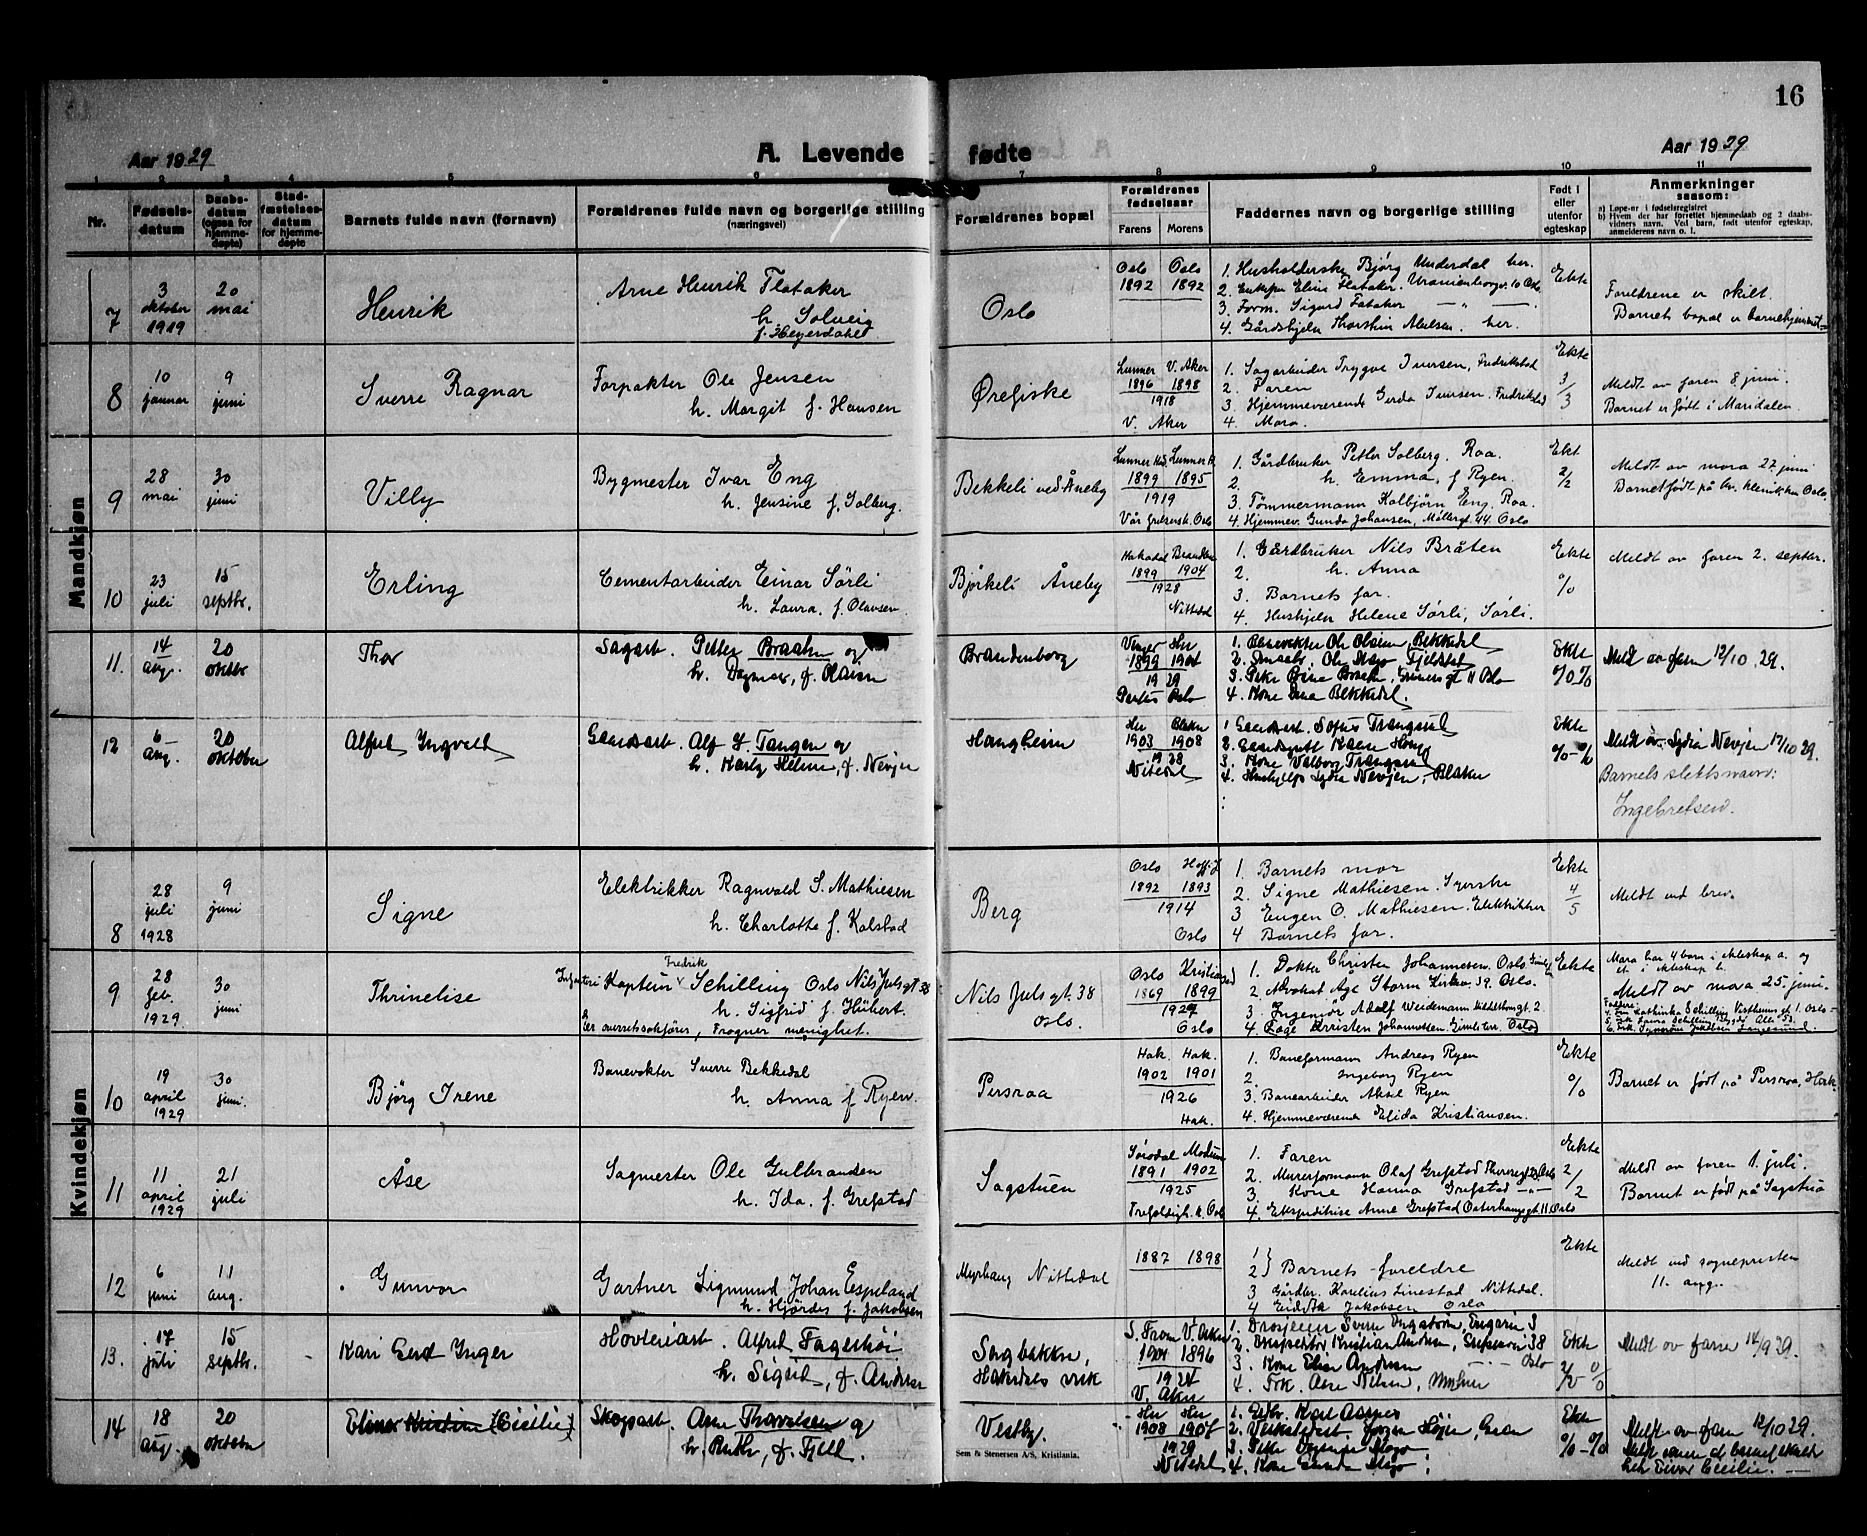 16
Aar 1929
A. Levende fødte
Aar 1929
1 2 3 4 5 6 7 8 9 10 11
Nr.
Fødsels-
datum
Daabs-
datum
(ogsaa for
hjemme-
døpte)
Stad-
fæstelses-
datum
for hjemme-
døpte
Barnets fulde navn (fornavn)
Forældrenes fulde navn og borgerlige stilling
(næringsvei)
Forældrenes bopæl
Forældrenes
fødselsaar
Farens Morens
Faddernes navn og borgerlige stilling
Født i
eller
utenfor
egteskap
Anmerkninger
saasom:
a) Løpe-nr i fødselsregistret
b) Hvem der har forrettet hjemmedaab og 2 daabs-
vidners navn. Ved barn, født utenfor egteskap,
anmelderens navn o. l.
Mandkjøn
7
3
oktober
1919
20
mai
Henrik
Arne Henrik Flataker
h. Solveig
f. Heyerdahl
Oslo
Oslo Oslo
1892 1892
1. Husholderske Bjørg Underdal her.
2. Enkefru Elise Flataker. Uranienborgv. 10 Oslo
3. Form. Sigurd Fataker — " —
4. Gårdshjelp Thorstein her.
Ekte
Foreldrene er skilt.
Barnets bopæl er barnehjemmet
8
10
januar
9
juni
Sverre Ragnar
Forpakter Ole Jensen
h. Margit f. Hansen
Ørfiske
Lunner V. Aker
1896 1898
1918
V. Aker
1. Sagarbeider Trygve Iversen, Fredrikstad
2. Faren
3. Hjemmeværende Gerda Iversen. Fredrikstad
4. Mora.
Ekte
3/3
Meldt av faren 8 juni.
Barnet er født i Maridalen.
9
28
mai
30
juni
Villy
Bygmester Ivar Eng
h. Jensine f. Solberg.
Bekkeli ved Åneby
Lunner Lunner
1899 1895
1919
Vår frelsersk. Oslo
1. Gårdbruker Petter Solberg. Roa.
2. h. Emma, f Ryen.
3. Tømmermann Kolbjørn Eng. Roa.
4. Hjemmev. Gunda Johansen, Møllergt. 44. Oslo
Ekt
2/2
Meldt av mora 27 juni
Barnet født på kv. klinikken Oslo.
10
23
juli
15
septbr.
Erling
Cementarbeider Einar Sørli
h. Laura f. Olavsen.
Bjørkeli Åneby
Hakadal
1899 1904
1928
Nittedal
1. Gårdbruker Nils Bråten
2. h. Anna
3. Barnets far.
4. Hushjelp Helene Sørli, Sørli.
Ekte
%
Meldt av faren 2. septbr.
11.
14
aug.
20
oktbr
Thor
Sagarb. Petter Braaten og
h. Dagmar, f. Olausen
Brandenborg
Her
1899 1904
1929
Oslo
1. Banevokter Ole Olsen, Bekkedal
2. Ole Fjeldstad
3. Oslo
4. Kone Bekkedal.
Ekte
Meldt av faren 12/10. 29.
12
6
aug.
20
oktober
Alfred Ingvald
Gaardsarb. Alf I. Tangen og
h. Karly Helene, f. Nevjen
Haugheim
Her Blaker
1903 1908
1928
Nitedal
1 Gaardsarb. Sofus
2.
3. Kone Valborg
4. Hushjelp Lydia Nevjen, Blaker
Ekte
Meldt av Lydia Nevjen 17/10 29.
Barnets slektsnavn:
Ingebretsen.
Kvindekjøn
8
28
juli
1928
9
juni
Signe
Elektrikker Ragnvald S. Mathiesen
h. Charlotte f. Kolstad
Berg
Oslo
1892 1893
1914
Oslo
1. Barnets mor
2. Signe Mathiesen.
3 Eugen O. Mathiesen. Elektrikker
4 Barnets far.
Ekte
4/5
Meldt ved brev.
9
28
feb.
1929
30
juni
Thrinelise
Fredrik
Infanteri Kaptein Schilling Oslo Nils Juls gt. 38
h. Sigfrid f. Hübert.
Er overrettssakfører, Frogner menighet.
Nils Juls gt. 38
Oslo.
Oslo Kristiansd
1869 1899
Oslo
1. Doktor Christen Johannesen. Oslo.
2. Advokat Åge Storm Kirkev. 59. Oslo.
3. Ingeniør Adolf Weidemann Middelthonsgt. 2
4. Kristen Johannessen Oslo
Ekte
Mora har 4 barn i ekteskap a. og
et i ekteskap b.
Meldt av mora 25 juni.
Faddere:
4. Fru Kathinka Schilling gt. 1. Oslo
5. Frk Laura Schilling
10
19
april
1929
30
juni.
Bjørg Irene
Banevokter Sverre Bekkedal
h. Anna f Ryen.
Persroa
Hak. Hak.
1902 1901
1926
Hak.
1. Baneformann Andreas Ryen
2. Ingeborg Ryen
3. Banearbeider Aksel Ryen
4. Hjemmeværende Elida Kristiansen.
Ekte
%
Barnet er født på Persroa, Hak.
11
11
april
1929
21
juli
Åse
Sagmester Ole Gulbrandsen
h. Ida f. Grefstad
Sagstuen
Modum
1891 1902
1925
Trefoldigh. k. Oslo
1. Faren
2. Murerformann Olaf Grefstad Oslo
3. Kone Hanna Grefstad —"—
4. Ekspeditrise Anne Grefstad Osterhausgt. 11. Oslo
Ekte
2/2
Meldt av faren 1. juli.
Barnet er født på Sagstua
12
6
juni
11
aug.
Gunvor
Gartner Sigmund Johan Espeland
h. Hjørdis f. Jakobsen
Myrhaug Nittedal
1887 1898
1
2 } Barnets foreldre
3 Gårdbr. Karelius Linestad Nittedal.
4 Jakobsen Oslo
Ekte
Meldt ved sognepresten
11. aug.
13.
17
juli
15
septbr.
Kari Gerd Inger
Høvleriarb. Alfred Fagerhøi
h. Sigrid, f. Andersen
Sagbakken,
Hakedals verk
V. Aker
1901 1896
1924
V. Aker
1.
2. Inspektør Kristian Andersen,
3. Kone Elise Andersen Oslo
4. Frk. Aase Nilsen,
Ekte
Meldt av faren 14/9 29.
14
18
aug.
20
oktober
Elinor Kristine (Cicilie)
Skogsarb. Arne Thorvaldsen og
h. Ruth, f. Fjell.
Vestby.
Her Her
1908 1907
1929
Nitedal
1. Gdbr. Karl Aaspro
2.
3.
4. Kone Gunda
Ekte
Meldt av faren 12/10 29.
Cecilie.
Sem & Stenersen A/S, Kristiania.